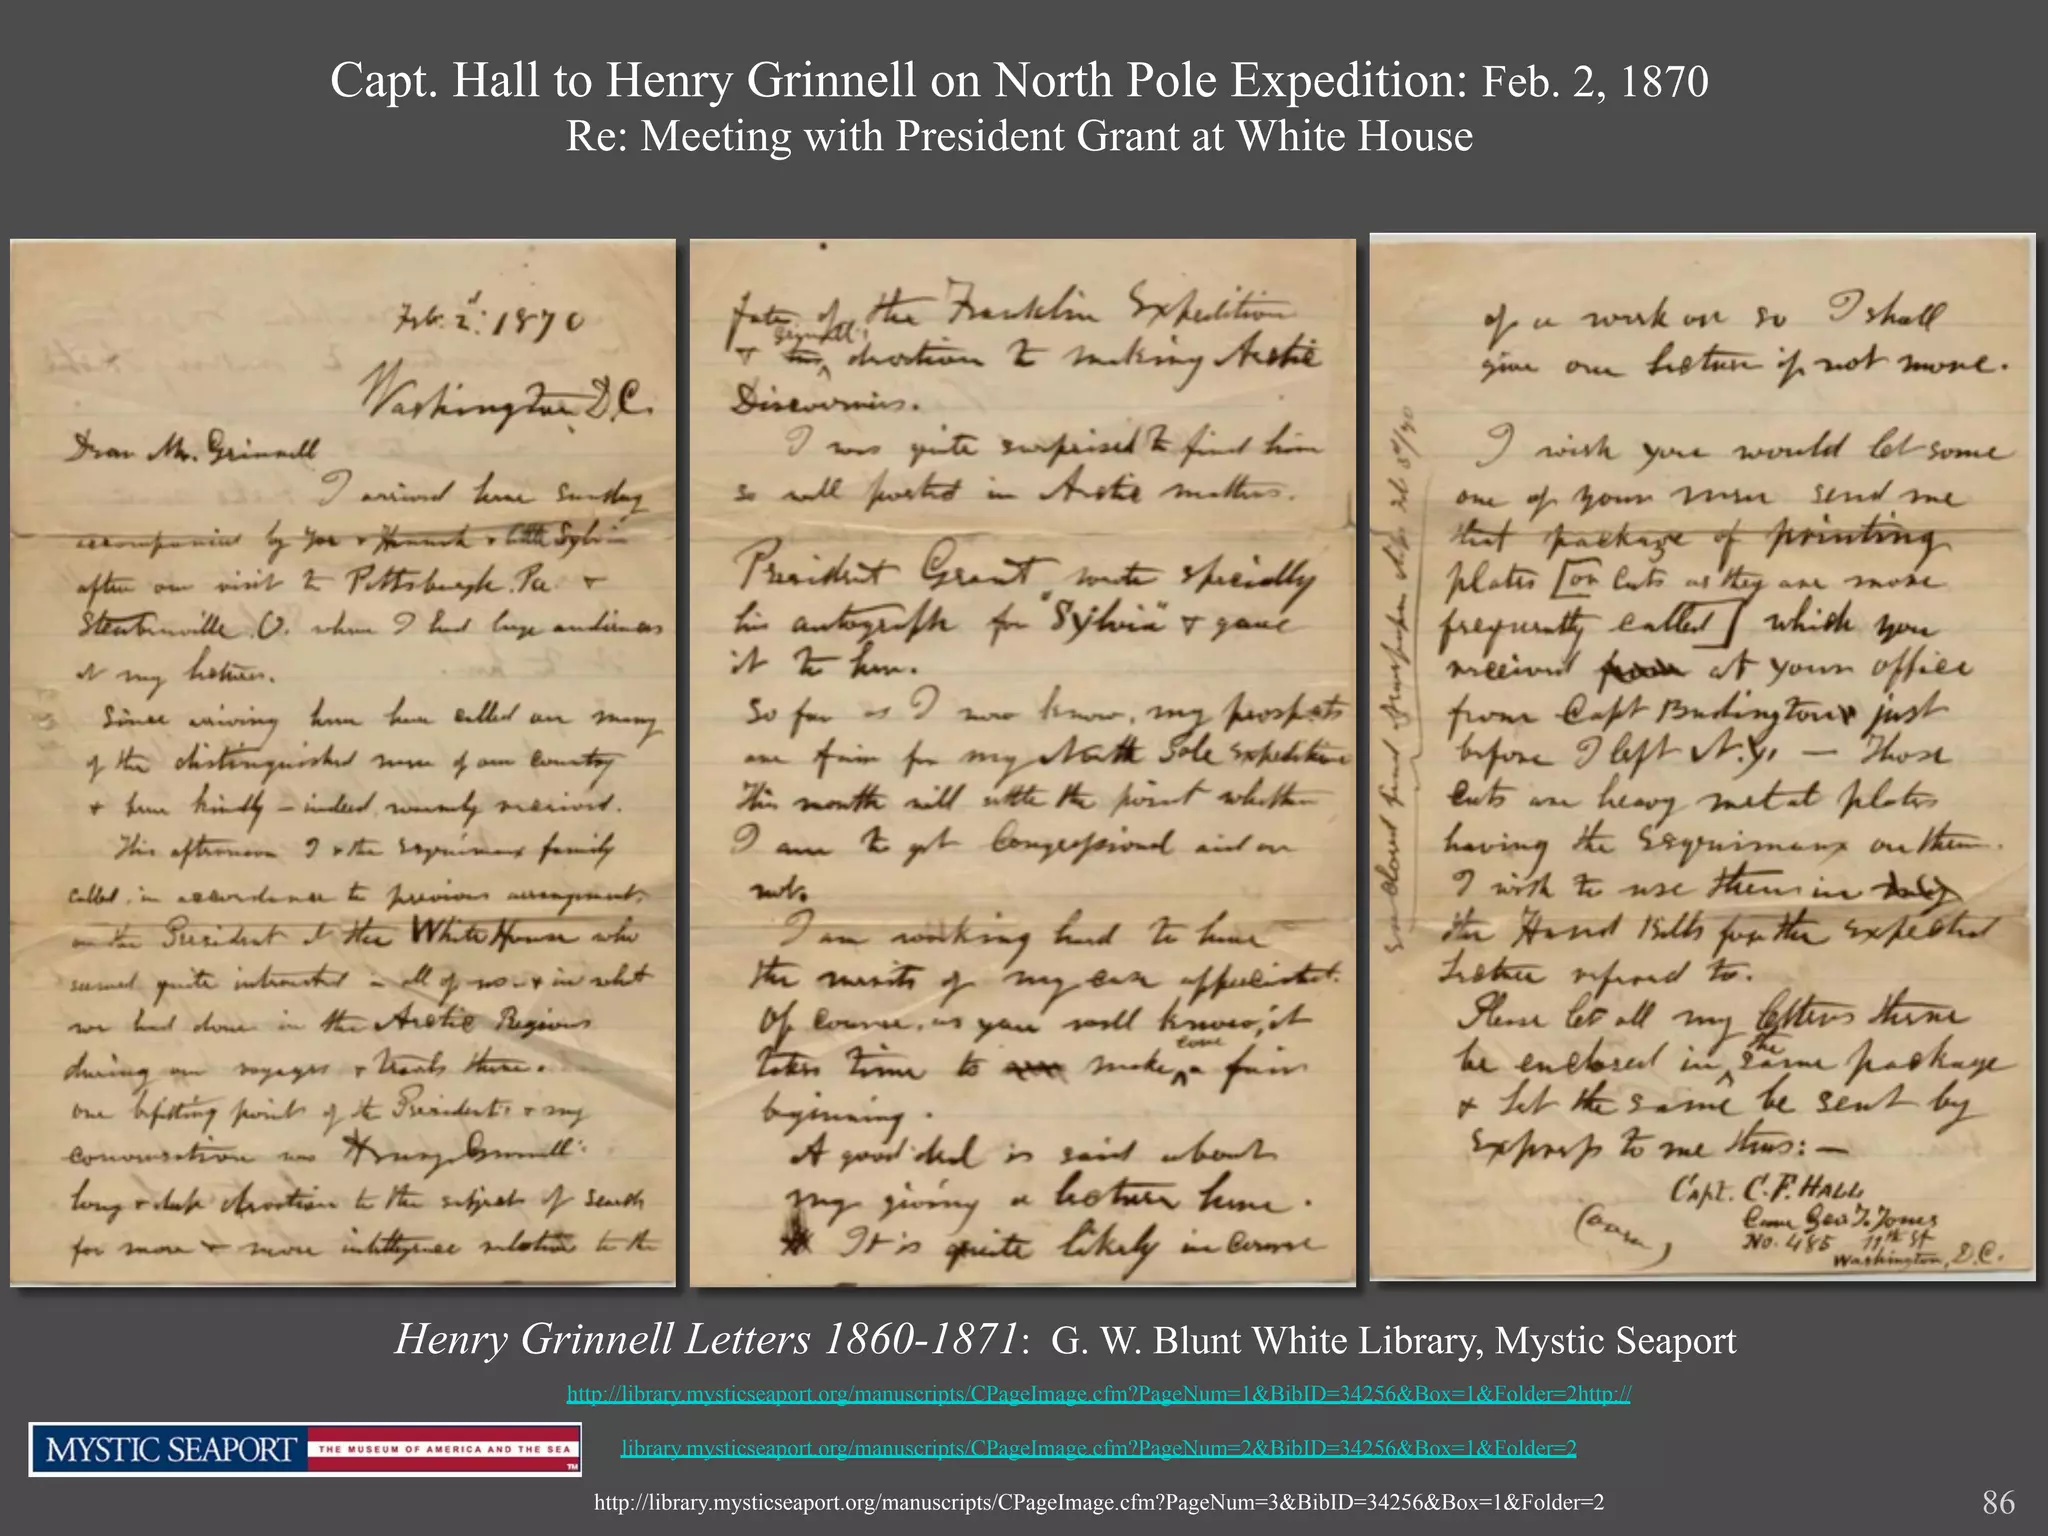 Capt. Hall to Henry Grinnell on North Pole Expedition: Feb. 2, 1870
Re: Meeting with President Grant at White House
Feb. 2d. 1870
Washington, D.C.
Dear Mr. Grinnell
I arrived here Sunday
accompanied by Joe & Hannah & little Sylvia
after our visit to Pittsburgh. Pa. &
Steubenville, O. where I had large audiences
at my lectures.
Since arriving here have called on many
of the distinguished men of our country
& been kindly – indeed, warmly received.
This afternoon I & the Esquimaux family
called, in accordance to previous arrangement,
on the President at the White House who
seemed quite interested in all of us & in what
we had done in the Arctic Regions
during our voyages & travels there.
One point of the President's & my
conversation was Henry Grinnell's
long & deep devotion to the subject of search
for more & more intelligence relative to the
fate of the Franklin Expedition
& his Grinnell's devotion to making Arctic
Discoveries.
I was quite surprised to find him
so well posted in Arctic matters.
President Grant wrote specially
his autograph for "Sylvia" & gave
it to her.
So far as I now know, my prospects
are fair for my North Pole Expedition
This month will settle the point whether
I am to get Congressional aid or
not.
I am working hard to have
the merits of my case appreciated.
Of course, as you well know, it
takes time to make even a fair
beginning.
A good deal is said about
my giving a lecture here.
It is quite likely in course
of a week or so I shall
give one lecture if not more.
I wish you would let some
one of your men send me
that package of printing
plates [or cuts as they are more
frequently called] which you
received from at your office
from Capt Budington just
before I left N.Y. — Those
cuts are heavy metal plates
having the Esquimaux on them.
I wish to use them in my
the Hand Bills for the expected
Lecture referred to.
Please let all my letters there
be enclosed in the same package
& let the same be sent by
Express to me thus: —
Capt. C. F. HALL
Care Geo. T. Jones
No. 485 11th St
Washington, D.C.
(over)
Enclosed find Newspaper slips
Henry Grinnell Letters 1860-1871: G. W. Blunt White Library, Mystic Seaport
http://library.mysticseaport.org/manuscripts/CPageImage.cfm?PageNum=1&BibID=34256&Box=1&Folder=2http://
library.mysticseaport.org/manuscripts/CPageImage.cfm?PageNum=2&BibID=34256&Box=1&Folder=2
MYSTIC SEAPORT THE MUSEUM OF AMERICA AND THE SEA TM
http://library.mysticseaport.org/manuscripts/CPageImage.cfm?PageNum=3&BibID=34256&Box=1&Folder=2
86